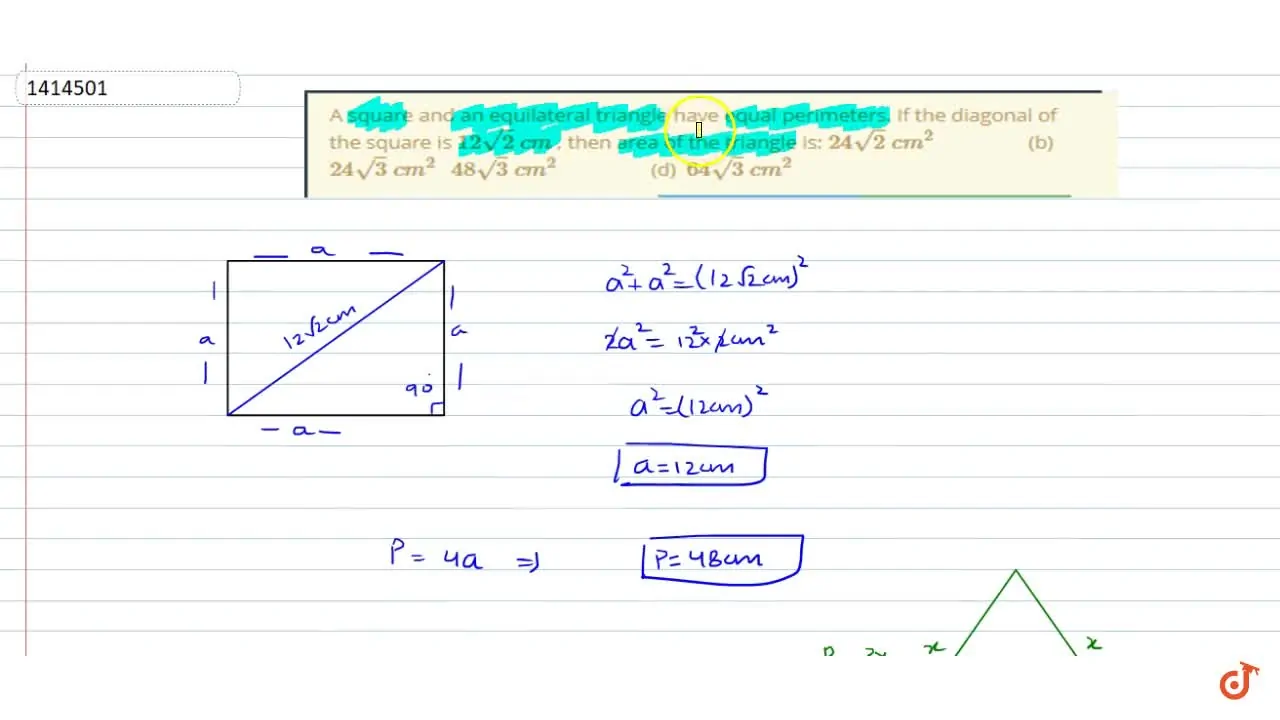 1414501
A square and an equilateral triangle have equal perimeters. If the diagonal of
the square is 12√2 cm, then area of the triangle is: 24√2 cm² (b)
24√3 cm² 48√3 cm² (d) 64√3 cm²
a
a
12√2 cm
a
90°
a
a² + a² = (12√2 cm)²
2a² = 12² × 2 cm²
a² = (12cm)²
a = 12cm
P = 4a ⇒ P = 48cm
x
x